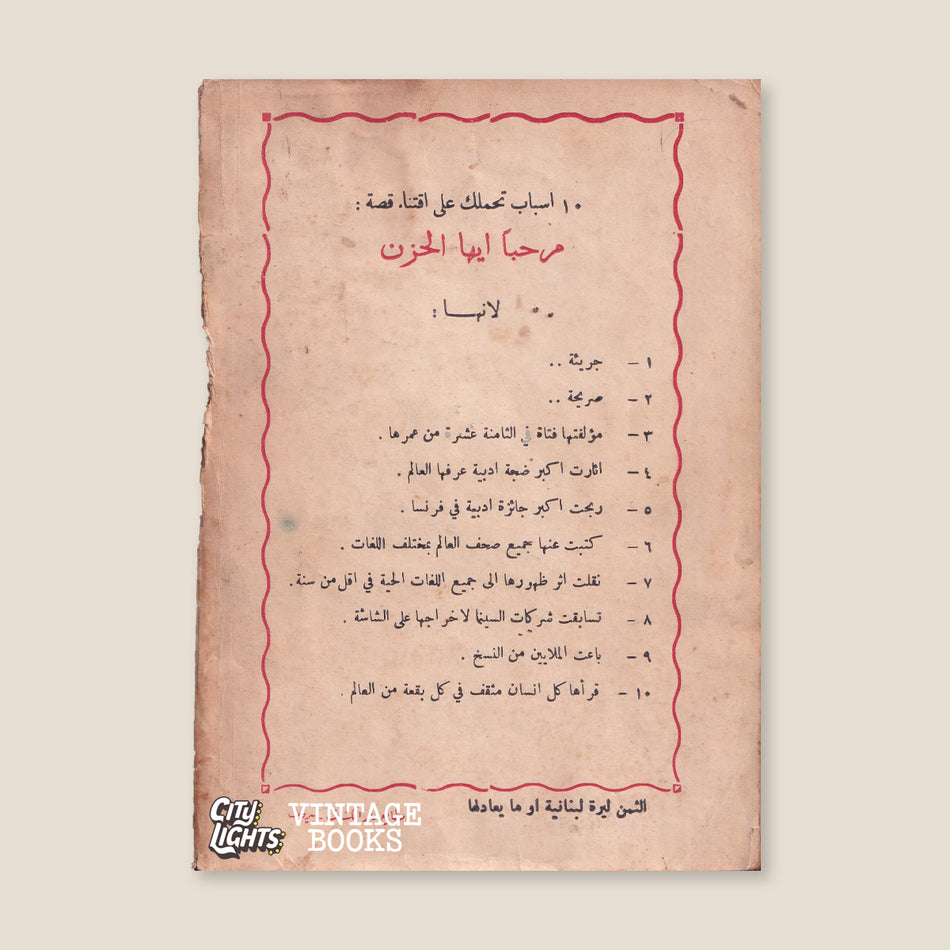 ١٠ اسباب تحملك على اقتناء قصة :
مرحباً ايها الحزن
. . لانهـــا :
١ - جريئة . .
٢ - صريحة . .
٣ - مؤلفتها فتاة في الثامنة عشرة من عمرها .
٤ - اثارت اكبر ضجة ادبية عرفها العالم .
٥ - ربحت اكبر جائزة ادبية في فرنسا .
٦ - كتبت عنها جميع صحف العالم بمختلف اللغات .
٧ - نقلت اثر ظهورها الى جميع اللغات الحية في اقل من سنة .
٨ - تسابقت شركات السينما لاخراجها على الشاشة .
٩ - باعت الملايين من النسخ .
١٠ - قرأها كل انسان مثقف في كل بقعة من العالم .
الثمن ليرة لبنانية او ما يعادلها
CITY LIGHTS
VINTAGE
BOOKS